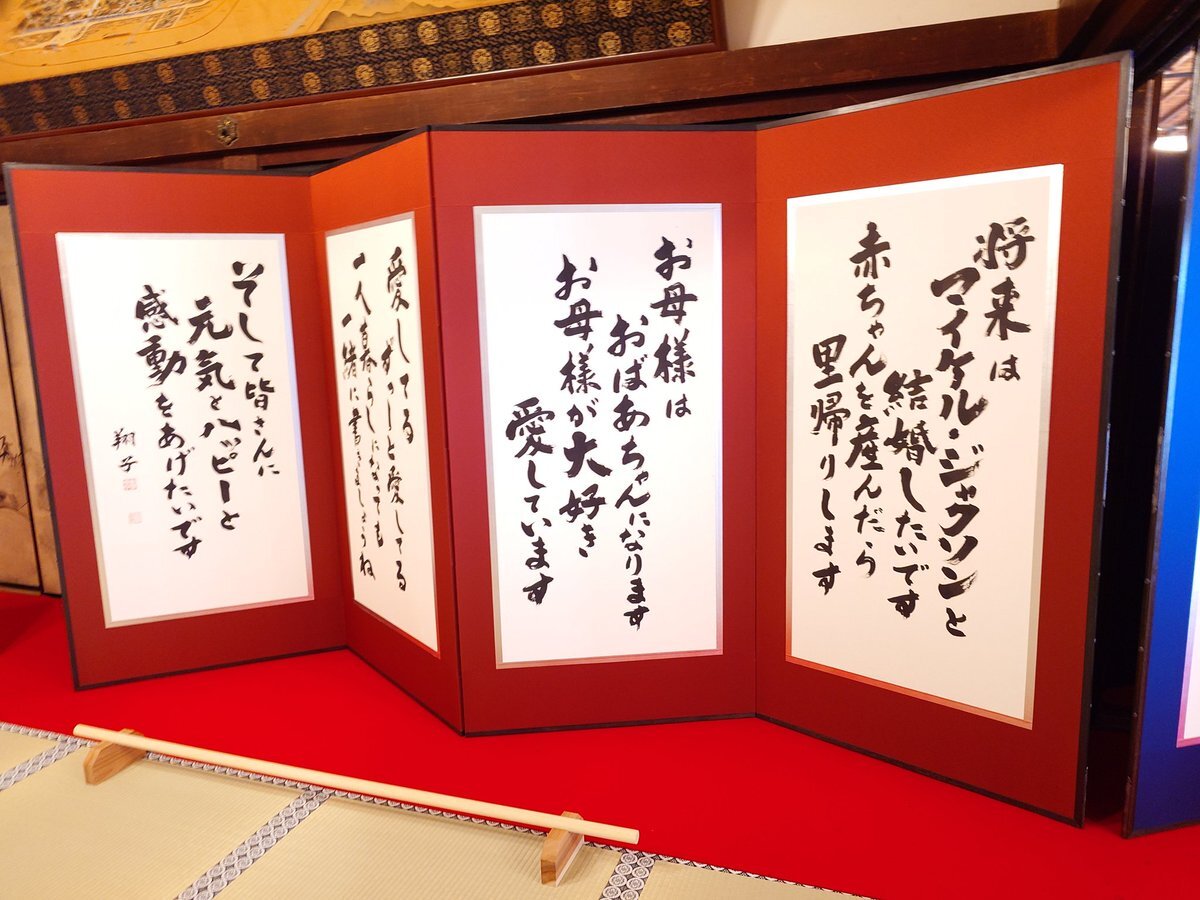 将来は
マイケル・ジャクソンと
結婚したいです
赤ちゃんを産んだら
里帰りします
お母様は
おばあちゃんになります
お母様が大好き
愛しています
愛してる
ずーっと愛してる
一人暮らしになっても
一緒に書きましょうね
そして皆さんに
元気とハッピーと
感動をあげたいです
翔子